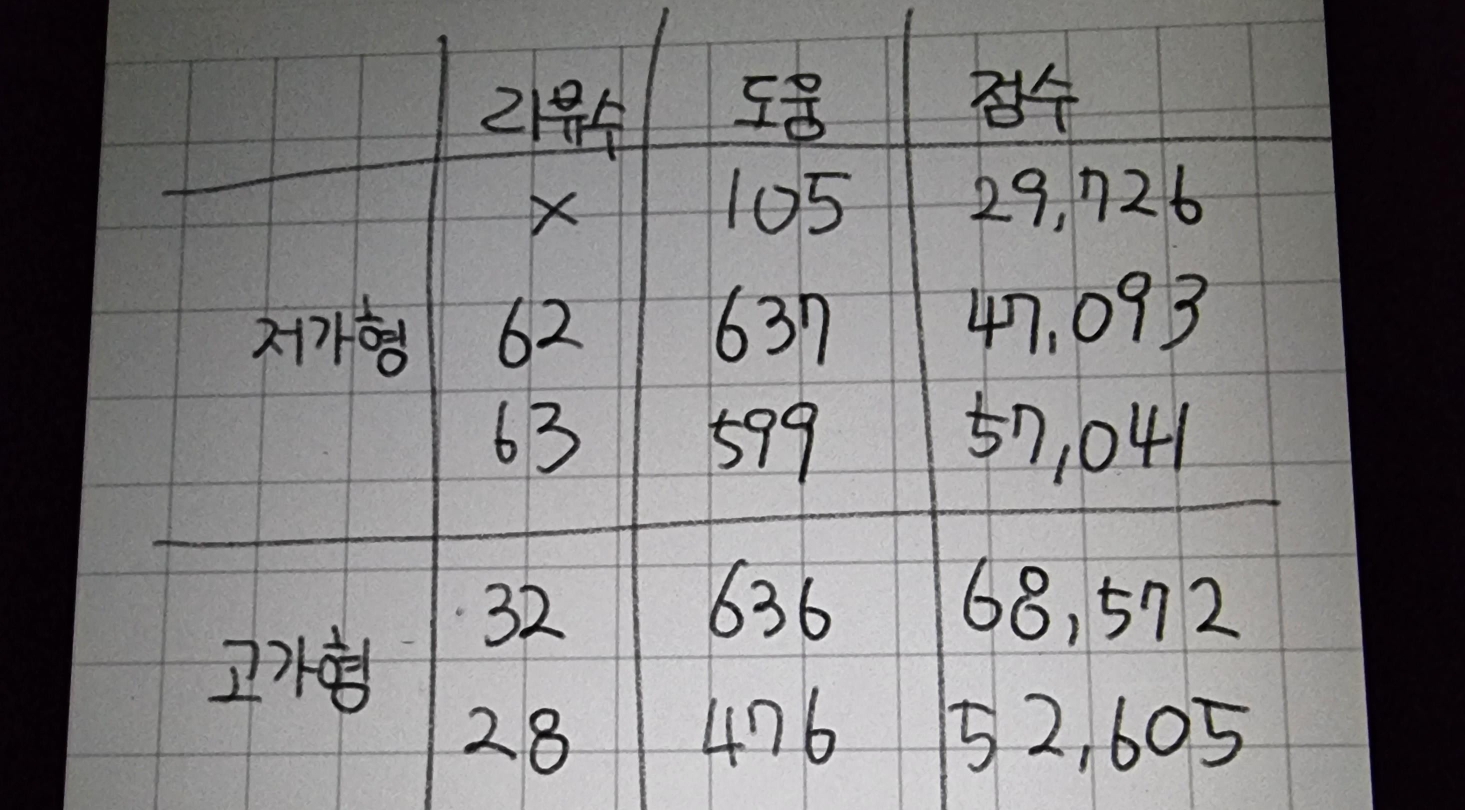 리뷰수 도움 점수
× 105 29,726
저가형 62 637 47,093
63 599 57,041
32 636 68,572
고가형
28 476 52,605